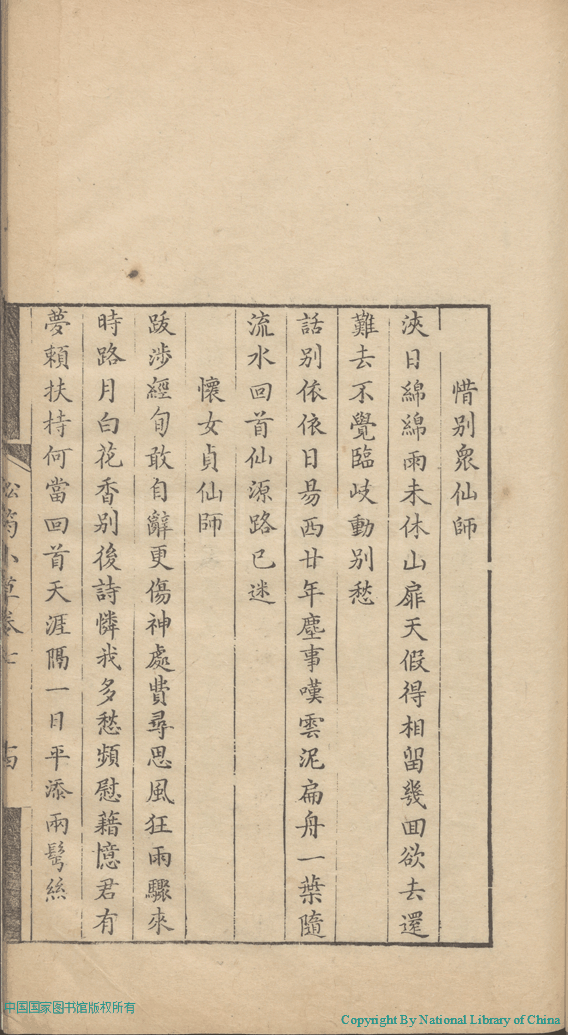 惜别眾仙師
浹日綿綿雨未休山扉天假得相留幾回欲去還
難去不覺臨歧動别愁
話别依依日昜西廿年塵事嘆雲泥扁舟一葉隨
流水回首仙源路已迷
懷女貞仙師
跋涉經旬敢自辭更傷神處費尋思風狂雨驟來
時路月白花香别後詩憐我多愁頻慰藉憶君有
夢賴扶持何當回首天涯隔一日平添兩鬢絲
小草卷七
中国国家图书馆版权所有
Copyright By National Library of China